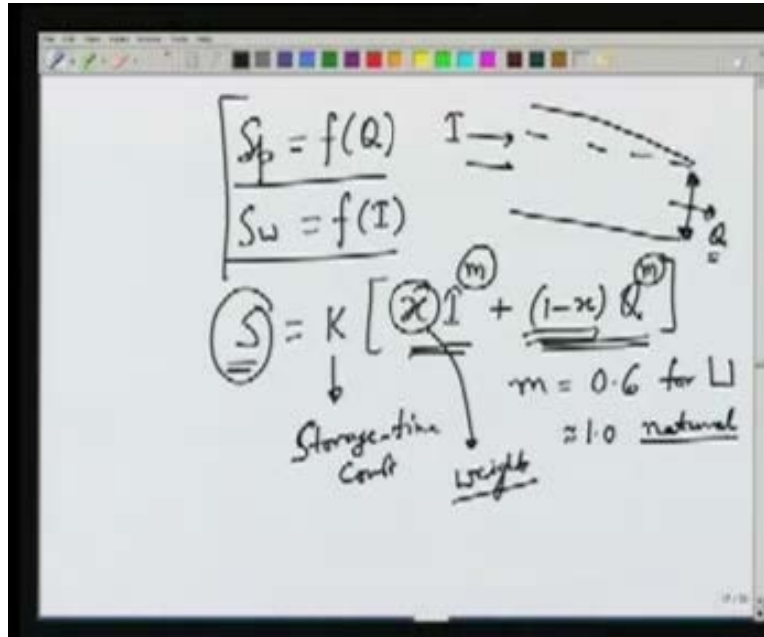 Sp = f(Q) I
Sw = f(I) Q
S = K [ x I^m + (1-x) Q^m ]
m = 0.6 for ⊔
≈ 1.0 natural
Storage-time
Const
weight